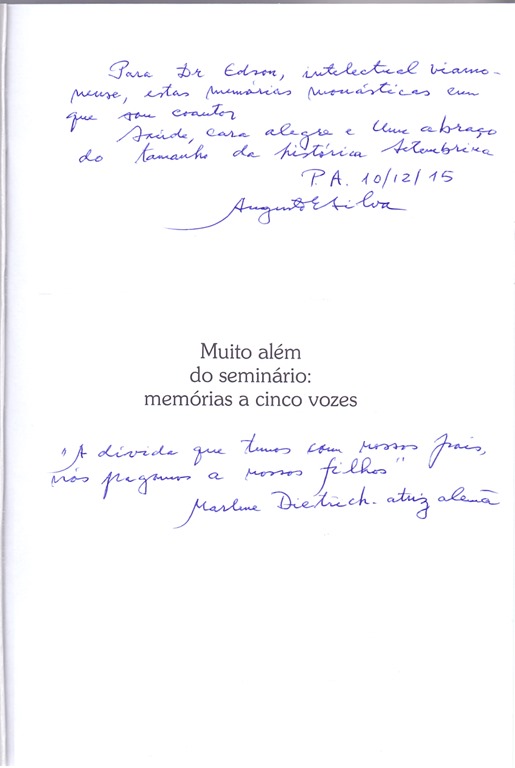 Para Dr Edson, intelectual viamo-
nense, estas memórias monásticas em
que sou coautor
Saúde, cara alegre e um abraço
do tamanho da histórica Setembrina
P.A. 10/12/15
Augusto E Silva
Muito além
do seminário:
memórias a cinco vozes
"A dívida que temos com nossos pais,
nós pagamos a nossos filhos"
Marlene Dietrich. atriz alemã